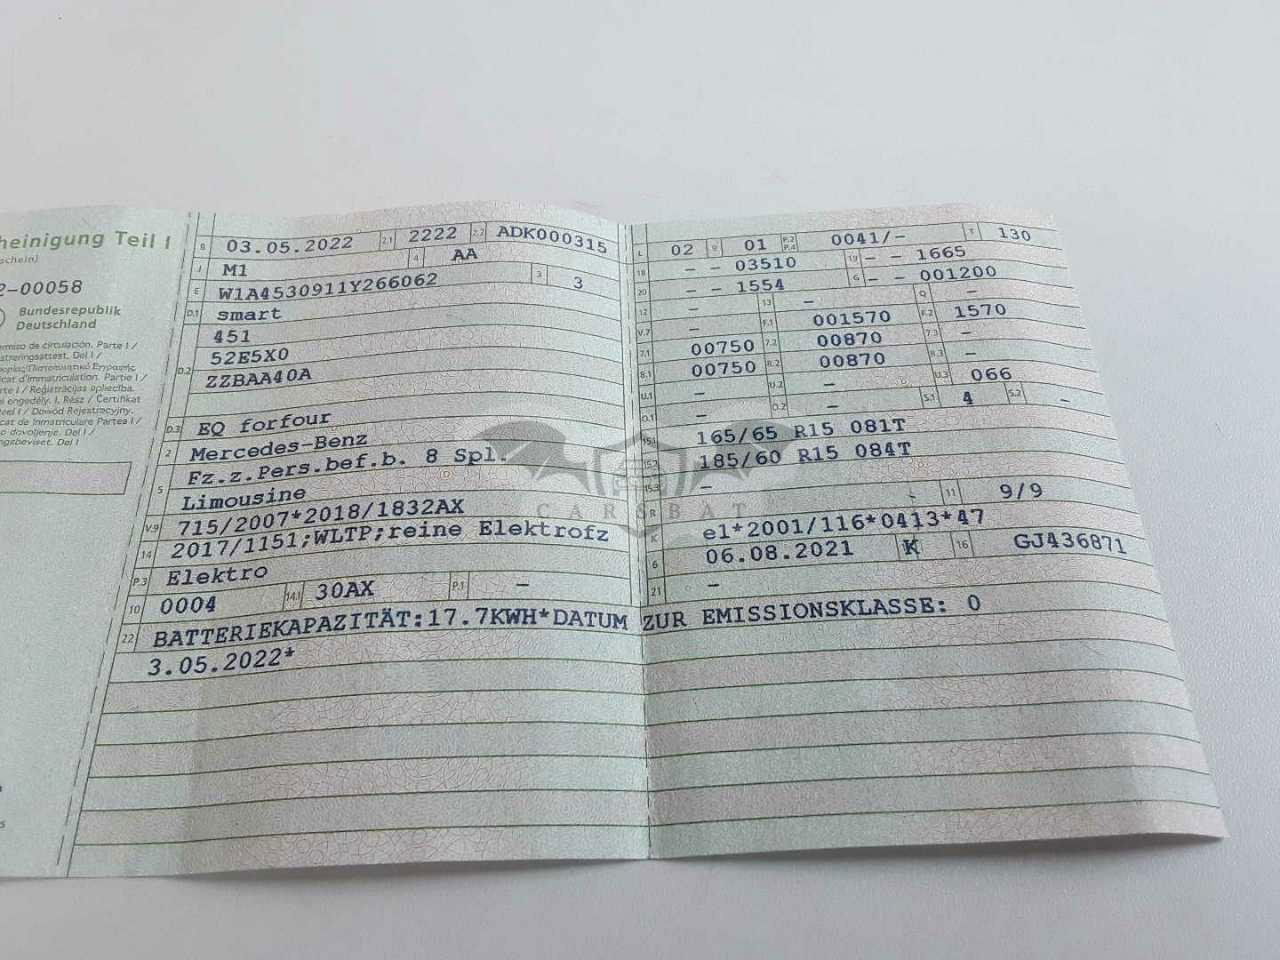 heinigung Teil I
schein)
2-00058
Bundesrepublik
Deutschland
ermiso de circulación. Parte I /
cat d'immatriculation. Partie I /
rte I / Reģistrācijas apliecība.
engedély. I. Rész / Ċertifikat
Teel I / Dowód Rejestracyjny.
cat de Inmatriculare Partea I /
o dovoljenje. Del I /
ngsbeviset. Del I
B 03.05.2022 2.1 2222 2.2 ADK000315
J M1 4 AA
E W1A4530911Y266062 3 3
D.1 smart
451
D.2 52E5X0
ZZBAA40A
D.3 EQ forfour
2 Mercedes-Benz
5 Fz.z.Pers.bef.b. 8 Spl.
Limousine
V.9 715/2007*2018/1832AX
14 2017/1151;WLTP;reine Elektrofz
P.3 Elektro
10 0004 14.1 30AX P.1 –
22 BATTERIEKAPAZITÄT:17.7KWH*DATUM ZUR EMISSIONSKLASSE: 0
3.05.2022*
L 02 9 01 P.2 P.4 0041/- T 130
18 – – 03510 19 – – 1665
20 – – 1554 G – – 001200
12 – 13 – Q –
V.7 – F.1 001570 F.2 1570
7.1 00750 7.2 00870 7.3 –
8.1 00750 8.2 00870 8.3 –
U.1 – U.2 – U.3 066
O.1 – O.2 – S.1 4 S.2 –
15.1 165/65 R15 081T
15.2 185/60 R15 084T
15.3 –
R 11 9/9
K e1*2001/116*0413*47
6 06.08.2021 K 16 GJ436871
21 –
CARSBAT